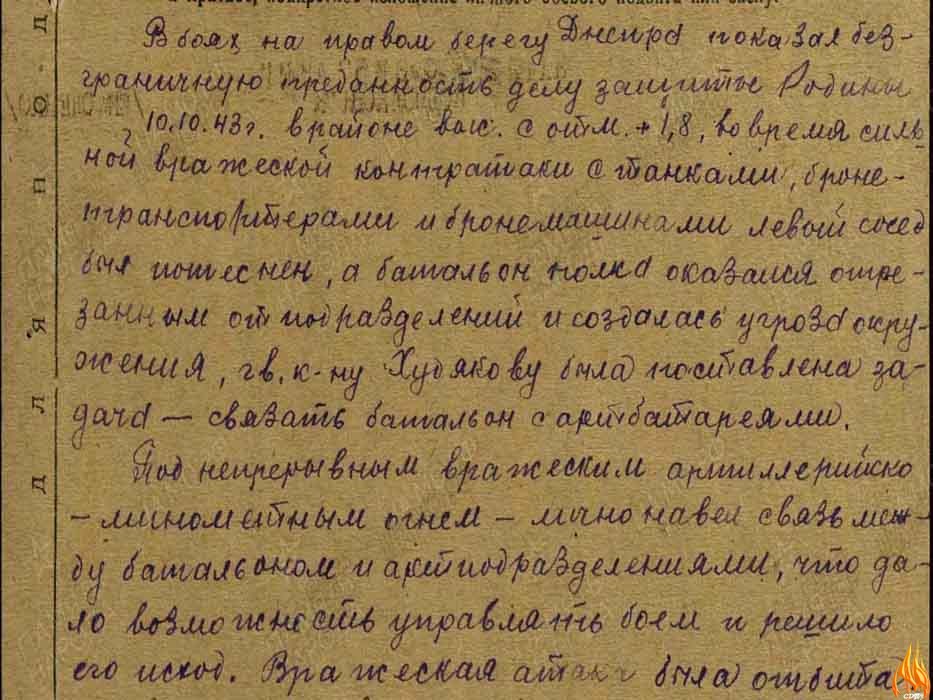 В боях на правом берегу Днепра показал без-
граничную преданность делу защиты Родины
10.10.43 г. в районе выс. с отм. + 1,8, во время силь-
ной вражеской контратаки с танками, броне-
транспортерами и бронемашинами левый сосед
был потеснен, а батальон полка оказался отре-
занным от подразделений и создалась угроза окру-
жения, гв. к-ну Худякову была поставлена за-
дача — связать батальон с артбатареями.
Под непрерывным вражеским артиллерийско
- минометным огнем - лично навел связь меж-
ду батальоном и артподразделениями, что да-
ло возможность управлять боем и решило
его исход. Вражеская атака была отбита.
д л я п о д